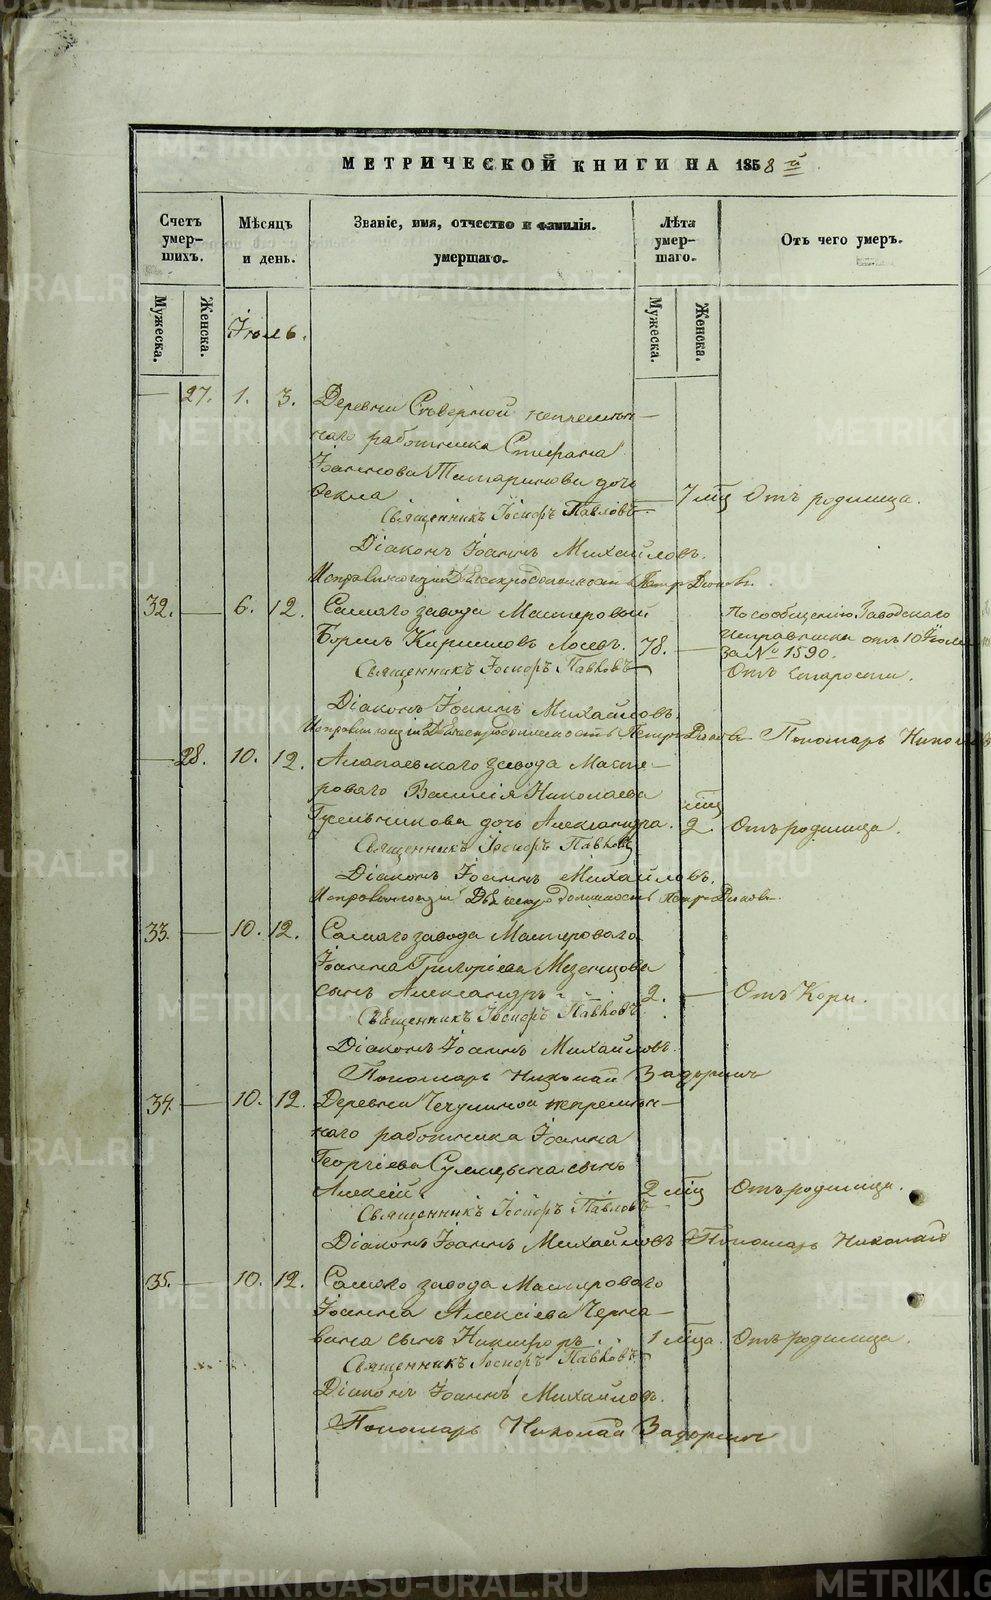 МЕТРИЧЕСКОЙ КНИГИ НА 1858 й
Счетъ умер-шихъ.
Мѣсяцъ и день.
Званіе, имя, отчество и фамилія. умершаго.
Лѣта умер-шаго.
Отъ чего умеръ.
Мужеска.
Женска.
Мужеска.
Женска.
Іюль.
— 27. 1. 3. Деревни Сѣверной непремѣн-
наго работника Стефана
Іоаннова Татаринова дочь
Фекла — 7 мц Отъ родимца.
Священникъ Іосифъ Павловъ
Діаконъ Іоаннъ Михайловъ.
Исправляющій Дьяческую должность Петръ
32. — 6. 12. Самаго завода Мастеровой
Борисъ Кириловъ Лосевъ. 78. —
По сообщенію Заводскаго
исправника отъ 10 Іюля
за № 1590.
Отъ старости.
Священникъ Іосифъ Павловъ
Діаконъ Іоаннъ Михайловъ.
Исправляющій Дьяческую должность Петръ Пономарь Николай
— 28. 10. 12. Алапаевскаго завода Масте-
роваго Василія Николаева
Гусельникова дочь Александра. 2 мц Отъ родимца.
Священникъ Іосифъ Павловъ
Діаконъ Іоаннъ Михайловъ.
Исправляющій Дьяческую должность Петръ
33. — 10. 12. Самаго завода Мастероваго
Іоанна Григоріева Мезенцова
сынъ Александръ 2. — Отъ Кори.
Священникъ Іосифъ Павловъ
Діаконъ Іоаннъ Михайловъ.
Пономарь Николай Задоринъ
34. — 10. 12. Деревни Чечулиной непремѣн-
наго работника Іоанна
Георгіева сынъ
Алексій 2 мц Отъ родимца.
Священникъ Іосифъ Павловъ
Діаконъ Іоаннъ Михайловъ Пономарь Николай
35. — 10. 12. Самаго завода Мастероваго
Іоанна Алексіева Черна-
вина сынъ Никифоръ 1 мца. Отъ родимца.
Священникъ Іосифъ Павловъ
Діаконъ Іоаннъ Михайловъ.
Пономарь Николай Задоринъ
METRIKI.GASO-URAL.RU